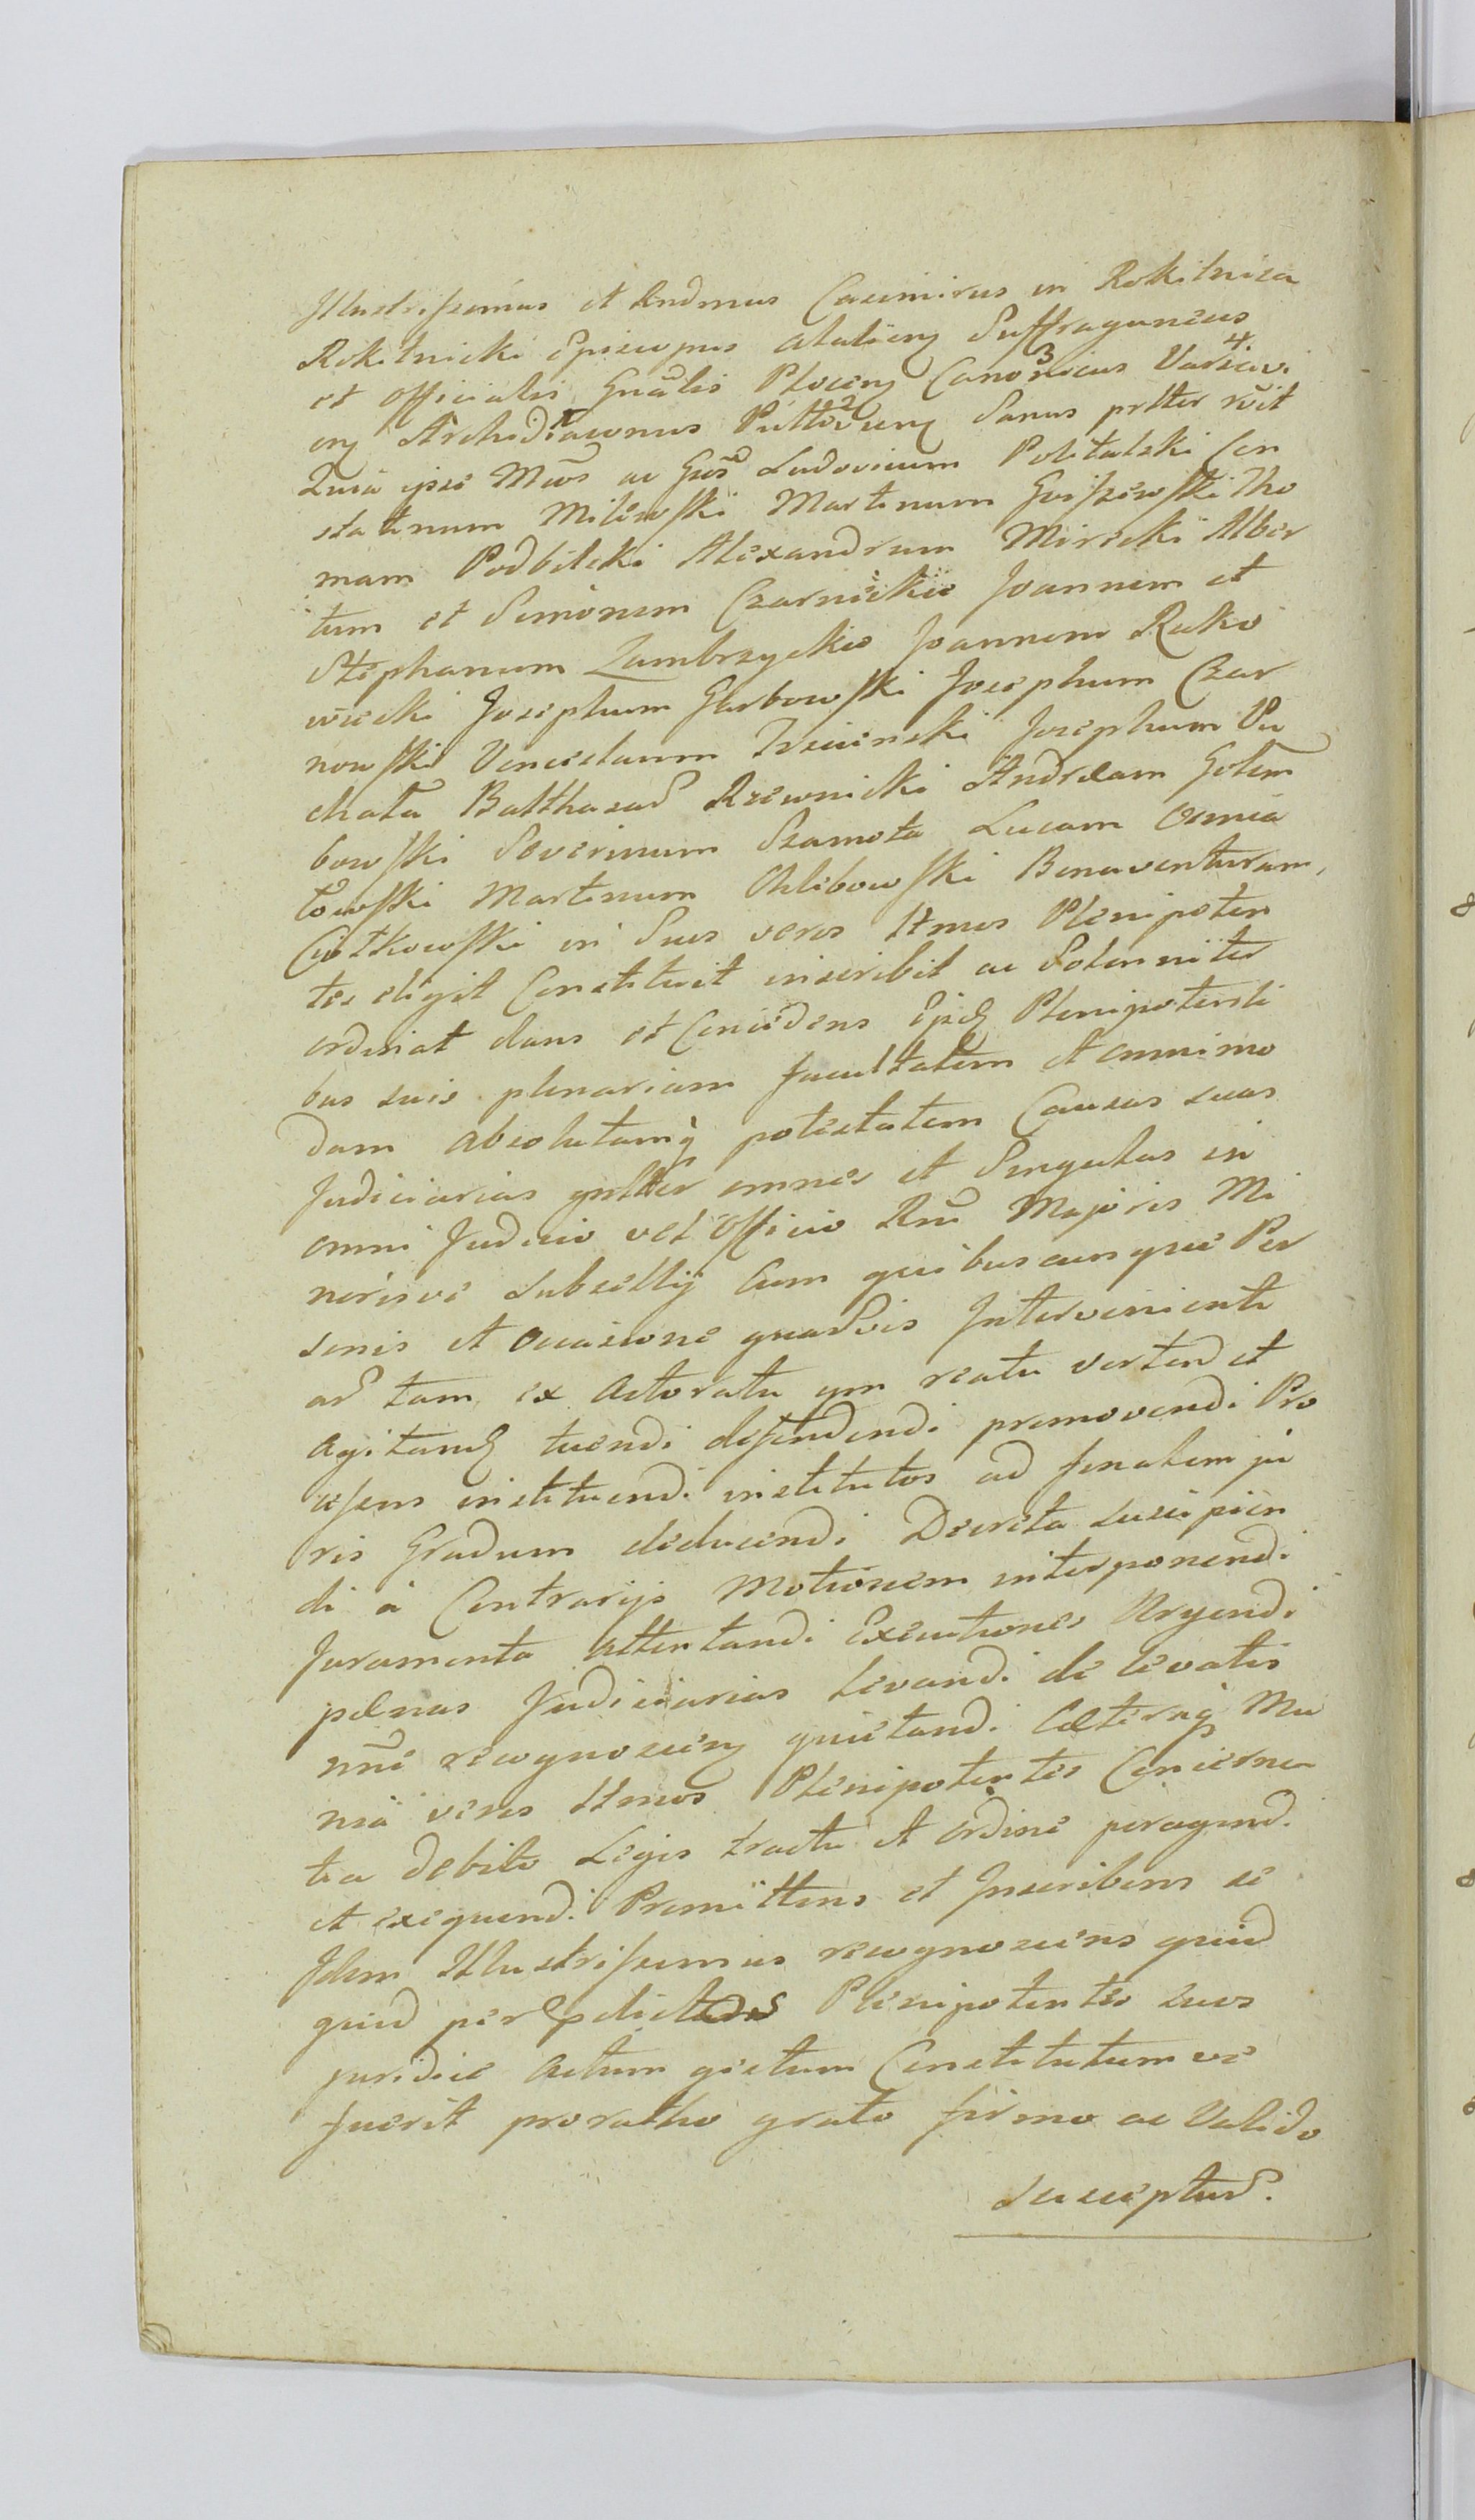 Illustrissimus et Rndmus Casimirus in Rokitnica
Rokitnicki Episcopus Suffraganeus
et Officialis Gnãlis Plocen Canonicus Varsavi
en Archidiaconus Pultoven Sanus pltter rcit
Quia ipse Mcos ac Gsos Ludovicum Politalski Con
stantinum Milewski Martinum Gvszewski Tho
mam Podbilski Alexandrum Mirecki Alber
tum et Simonem Czarneckie Joannem et
Stephanum Zambrzyckie Joannem Rako
wiecki Josephum Garbowski Josephum Czar
nowski Venceslaum Trzcinski Josephum Pu
chała Balthasar Rzewnicki Andream Golem
bowski Severinum Szamota Lucam Osmia
łowski Martinum Chlibowski Bonaventuram
Ciołkowski in Suos veros ltmos Plenipoten
tes eligit Constituit inscribit ac Solenniter
ordinat dans et Concedens Plenipotenti
bus suis plenariam facultatem et omnimo
dam absolutamq potestatem Causas suas
Judiciarias gnltter omnes et Singulas in
omni Judicio vel Officio Rni Majoris Mi
norisve Subsellij Cum quibuscunque Per
sonis et Occasione quarvis Intervenienti
ar tam ex Actoratu qm reatu verten et
agitand tuendi defendendi promovendi Pro
cessus instituendi institutos ad finalem ju
ris Gradum deducendi Decreta suscipien
di à Contrarijs Motionem interponendi
Juramenta attentandi Executiones Urgendi
pænas Judiciarias levandi de levatis
nne recognoscen quietandi Cæteraq Mu
nia veros ltmos Plenipotentes Concernen
tia debito Legis tractu et ordine peragend.
et exequend. Promittens et Inscribens se
Idem Illustrissimus recognoscens quid
quid per pdictos Plenipotentes suos
juridice Actum gestum Constitutum ve
fuerit pro ratho grato firmo ac Valido
suscepturˀ.